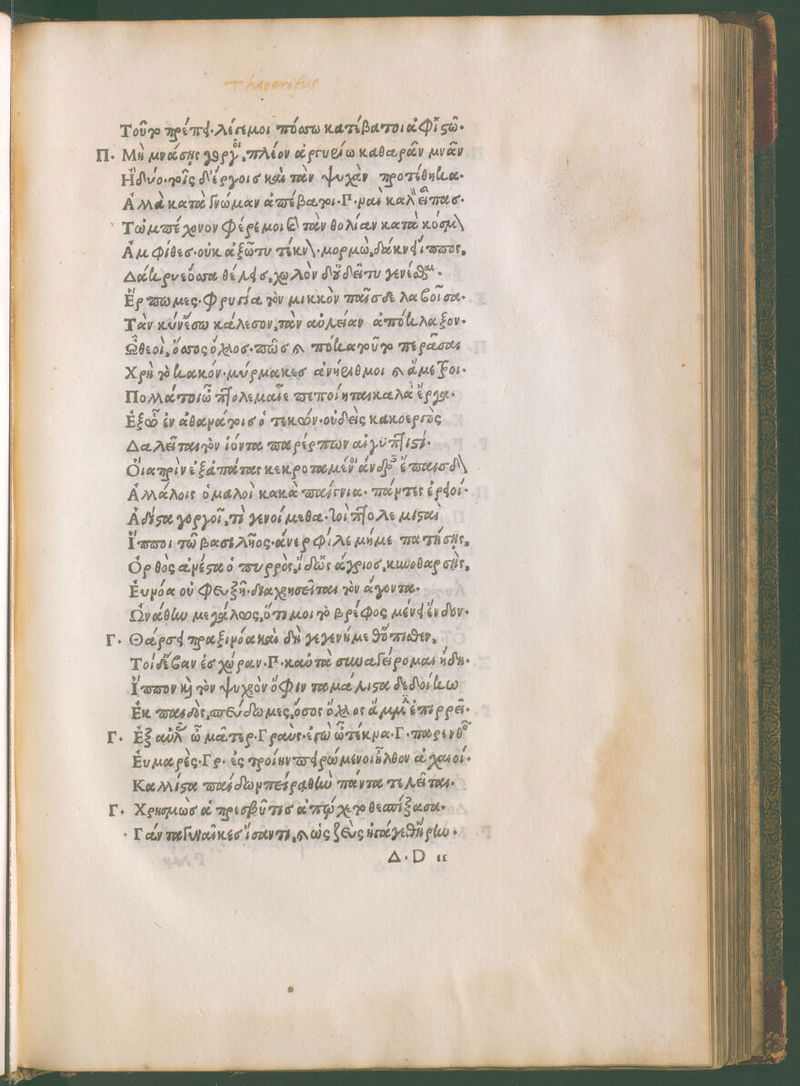 Τοῦτο πρέπει·λέγε μοι πόσσω κατέβα τοι ἀφ' ἱστῶ·
Π· Μὴ μνάσῃς γοργοῖ, πλέον ἀργυρίω καθαρᾶν μνᾶν
Ἢ δύο·τοῖς δ' ἔργοις καὶ τὰν ψυχὰν προτέθηκα·
Ἀλλὰ κατὰ γνώμαν ἀπέβα τοι·Γ·ναι καλ' εἶπας·
Τὠμπέχονον φέρε μοι καὶ τὰν θολίαν κατὰ κόσμον
Ἀμφίθες·οὐκ ἀξῶ τυ τέκνον·μορμὼ, δάκνει ἵππος,
Δάκρυε ὅσσα θέλεις, χωλὸν δ' οὐ δεῖ τυ γενέσθαι·
Ἕρπωμες·φρυγία τὸν μικκὸν παῖσδε λαβοῖσα·
Τὰν κύν' ἔσω κάλεσον, τὰν αὐλείαν ἀπόκλαξον·
Ὦ θεοὶ, ὅσσος ὄχλος·πῶς καὶ πόκα τοῦτο περᾶσαι
Χρὴ τὸ κακόν·μύρμακες ἀνήριθμοι καὶ ἄμετροι·
Πολλά τοι ὦ πτολεμαῖε πεποίηται καλὰ ἔργα·
Ἐξ ὧ ἐν ἀθανάτοις ὁ τεκών·οὐδεὶς κακοεργὸς
Δαλεῖται τὸν ἰόντα παρέρπων αἰγυπτιστί·
Οἷα πρὶν ἐξ ἀπάτας κεκροταμένοι ἄνδρες ἔπαισδον
Ἀλλάλοις ὁμαλοὶ κακὰ παίγνια· πάντες ἐρειοί·
Ἁδίστα γοργοῖ, τί γενοίμεθα·τοὶ πτολεμισταὶ
Ἵπποι τῶ βασιλῆος·ἄνερ φίλε μή με πατήσῃς,
Ὀρθὸς ἀνέστα ὁ πυρρὸς, ἴδ' ὡς ἄγριος, κυνοθαρσὴς,
Εὐνόα οὐ φευξῇ·διαχρησεῖται τὸν ἄγοντα·
Ὠνάθην μεγάλως, ὅτι μοι τὸ βρέφος μένει ἔνδον·
Γ· Θάρσει πραξινόα καὶ δὴ γεγενήμεθ' ὄπισθεν,
Τοὶ δ' ἔβαν ἐς χώραν·Π·καὐτὰ συναγείρομαι ἤδη·
Ἵππον καὶ τὸν ψυχρὸν ὄφιν ταμάλιστα δεδοίκω
Ἐκ παιδὸς, σπεύδωμες, ὅσος ὄχλος ἄμμιν ἐπιρρεῖ·
Γ· Ἐξ αὐλᾶς ὦ μᾶτερ·Γραῦς·ἐγὼ ὦ τέκνα·Γ·παρενθεῖν
Εὐμαρὲς·Γρ·ἐς τροίην πειρώμενοι ἦλθον ἀχαιοί·
Κάλλιστα παίδων πείρᾳ θὴν πάντα τελεῖται·
Γ· Χρησμὼς ἁ πρεσβῦτις ἀπῴχετο θεσπίξασα·
Πάντα γυναῖκες ἴσαντι, καὶ ὡς ζεὺς ἠγάγεθ' ἥρην·
Δ·D ii